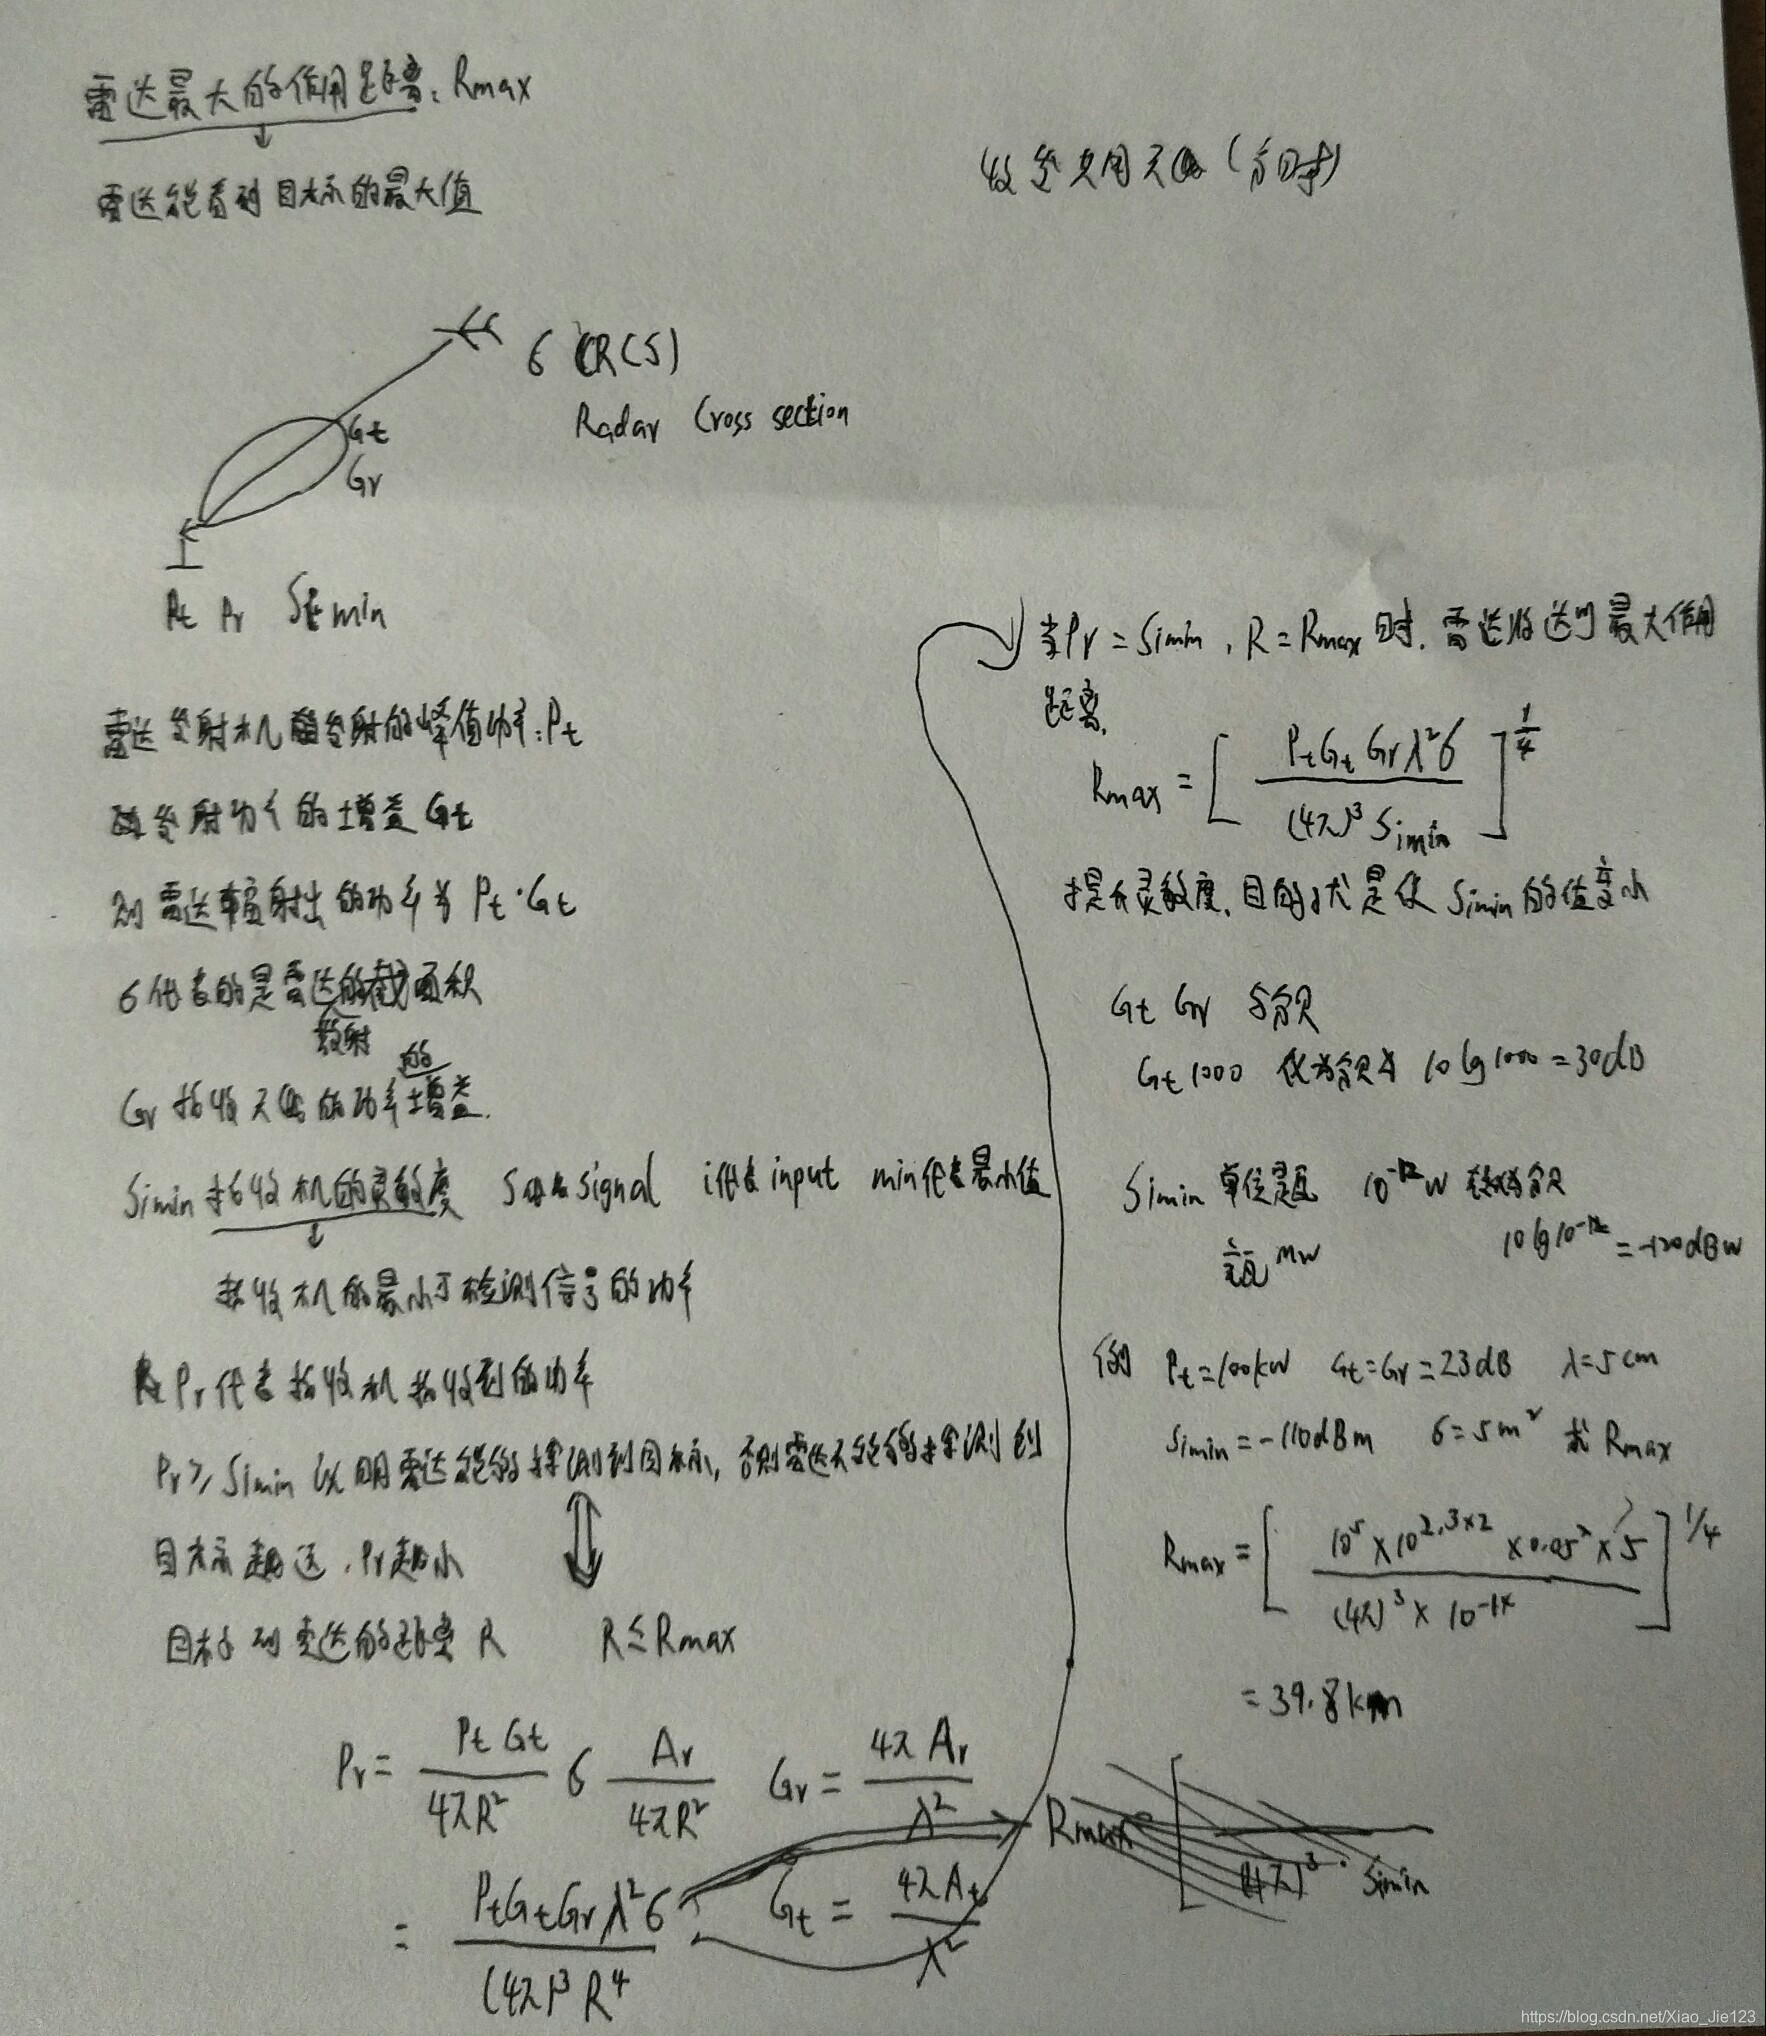 雷达最大的作用距离: Rmax
雷达能看到目标的最大值
收发共用天线(分时)
σ (RCS)
Radar Cross section
Gt
Gr
Pt Pr Simin
雷达发射机发射的峰值功率: Pt
发射功率的增益 Gt
则雷达辐射出的功率为 Pt·Gt
σ代表的是雷达的散射截面积
Gr 接收天线的功率的增益.
Simin 接收机的灵敏度 S代表signal i代表input min代表最小值
接收机的最小可检测信号的功率
Pr代表接收机接收到的功率
Pr≥Simin 说明雷达能够探测到目标, 否则雷达不能够探测到
目标越远, Pr越小
目标到雷达的距离 R R≤Rmax
Pr = PtGt/4πR² σ Ar/4πR² Gr = 4πAr/λ²
= PtGtGrλ²σ/(4π)³R⁴ Gt = 4πAt/λ²
当Pr = Simin, R = Rmax时, 雷达将达到最大作用
距离.
Rmax = [PtGtGrλ²σ/(4π)³Simin]^1/4
提升灵敏度, 目的就是使 Simin的值变小
Gt Gr 分贝
Gt 1000 化为分贝为 10lg1000=30dB
Simin 单位是瓦 10⁻¹²W 转换为分贝
毫瓦 mW 10lg10⁻¹²=-120dBW
例 Pt=100kW Gt=Gr=23dB λ=5cm
Simin=-110dBm σ=5m² 求 Rmax
Rmax = [10⁵×10^2.3×2×0.05²×5/(4π)³×10⁻¹⁴]^1/4
=39.8km
Rmax (4π)³·Simin
https://blog.csdn.net/Xiao_Jie123